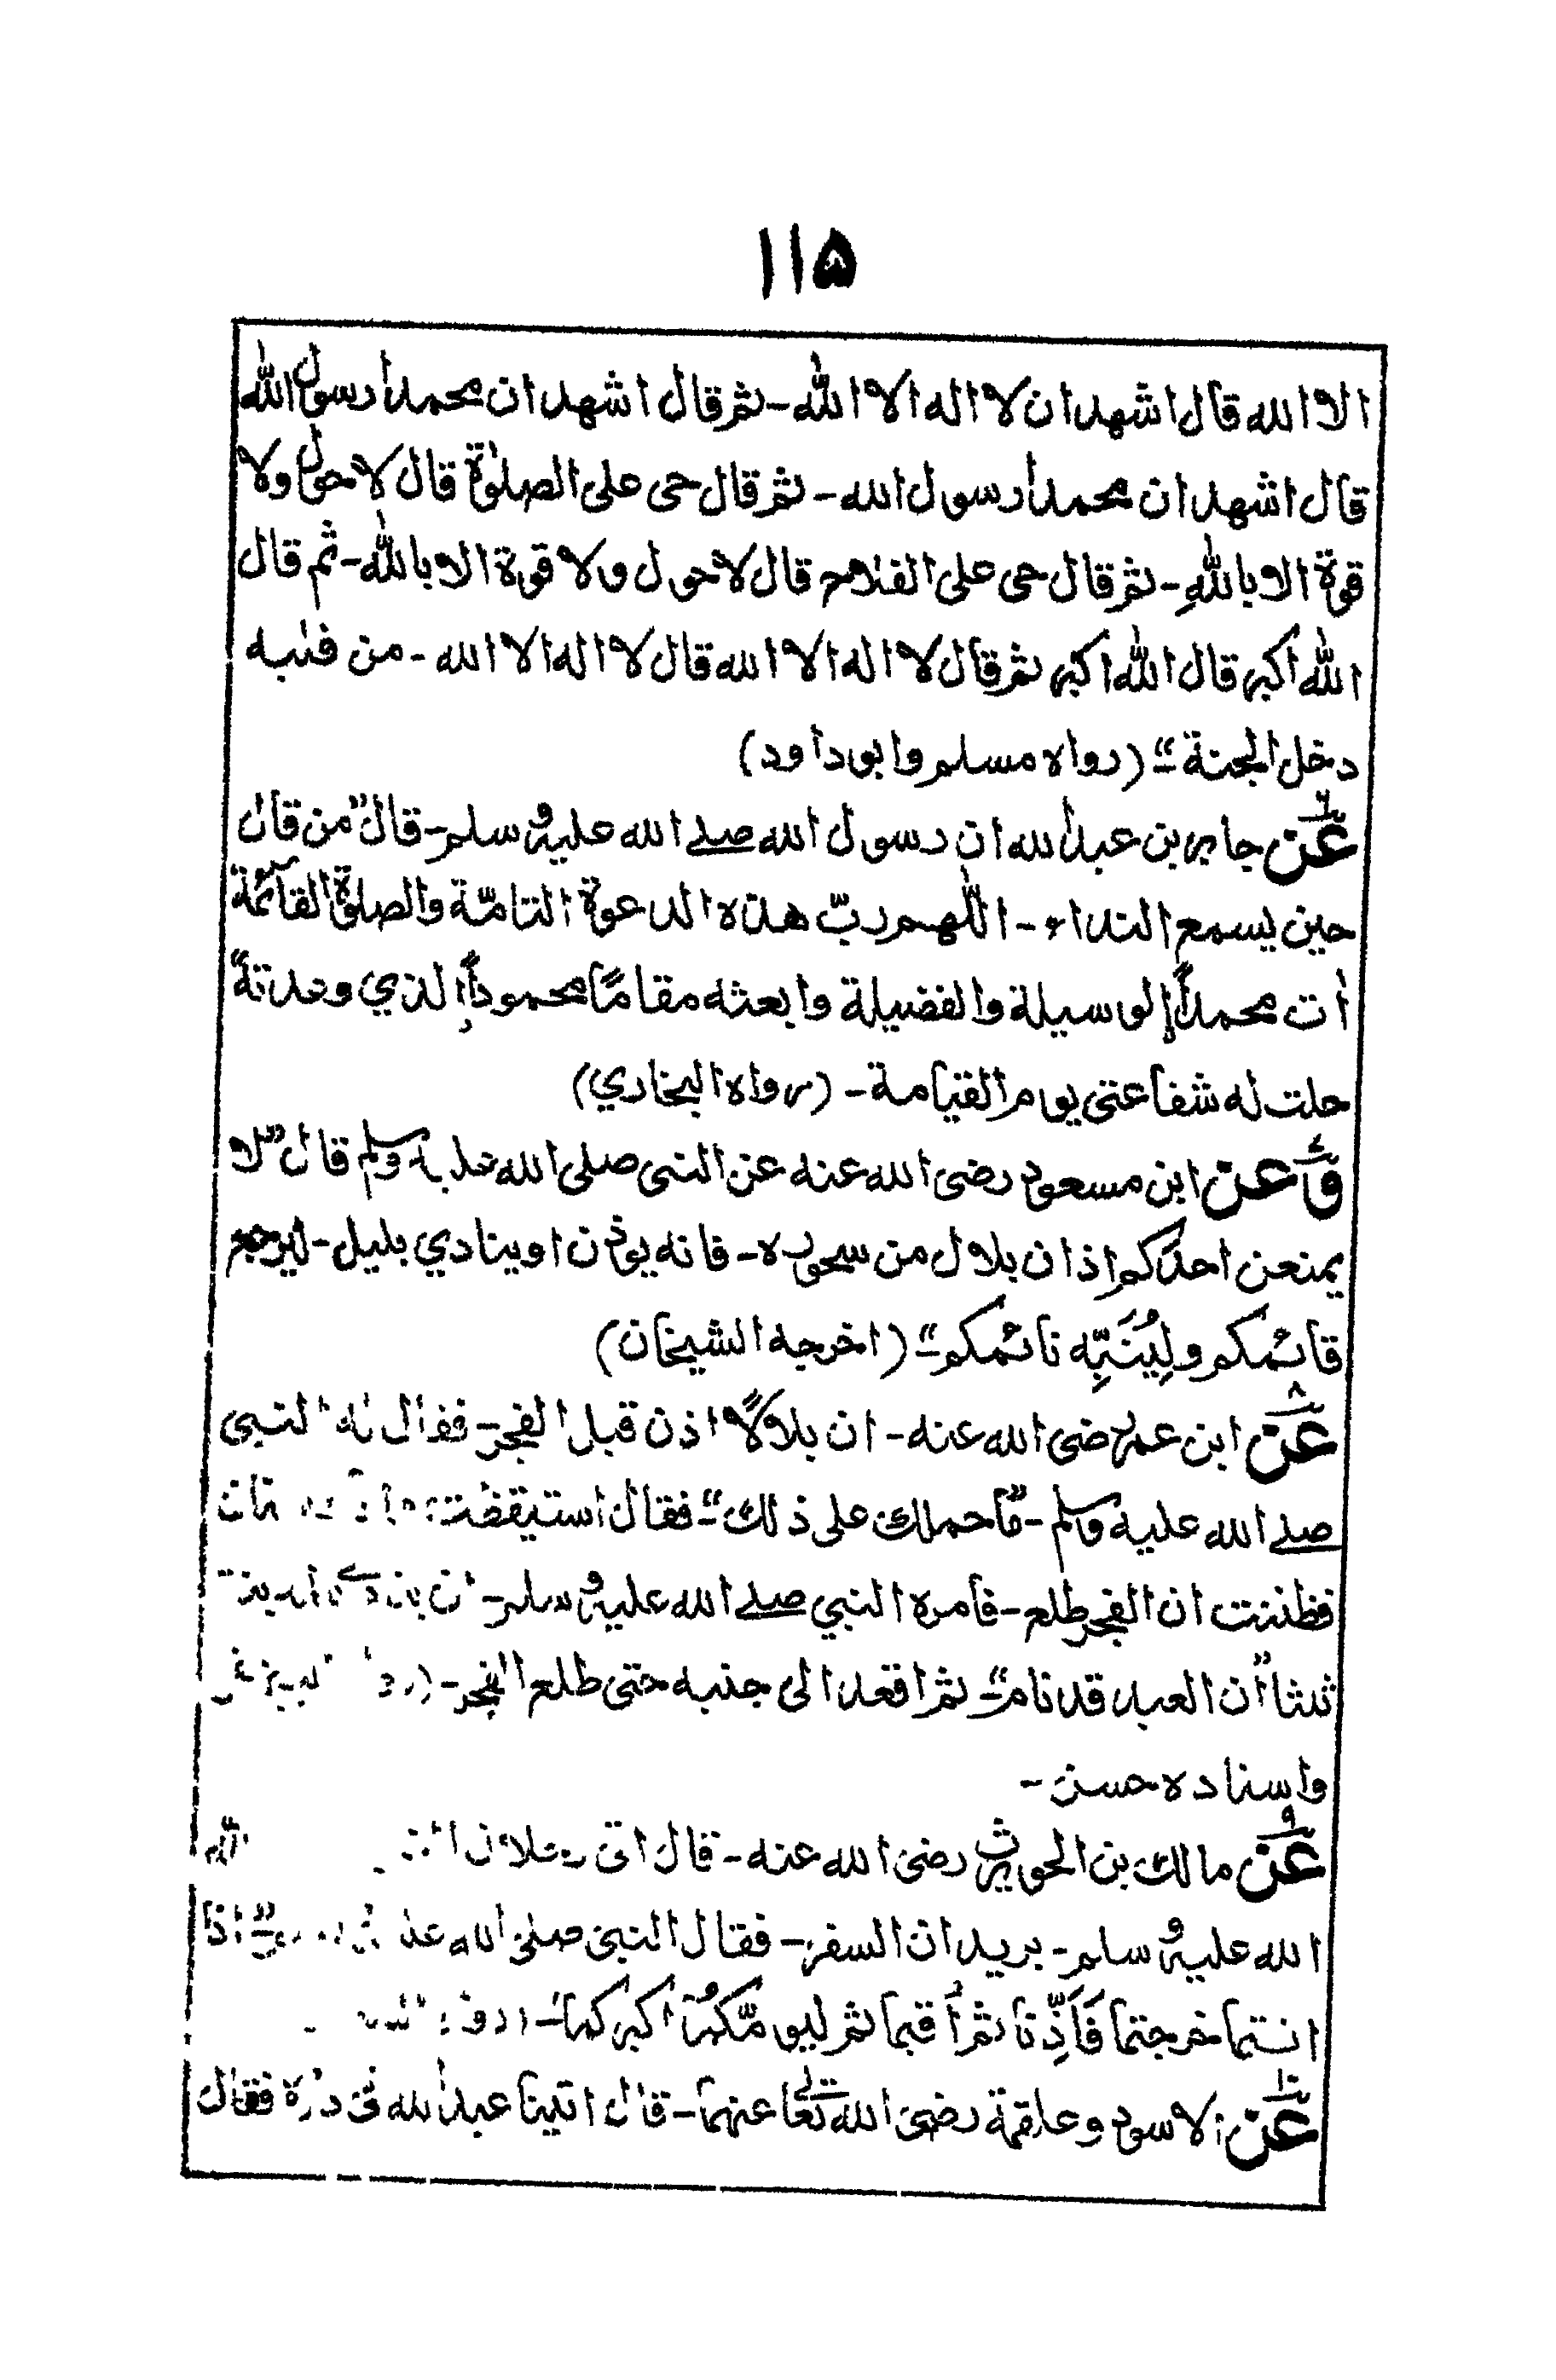 ۱۱۵
الا الله قال اشهد ان لا اله الا الله - ثم قال اشهد ان محمداً رسول الله
قال اشهد ان محمداً رسول الله - ثم قال حى على الصلوٰة قال لا حول ولا
قوة الا بالله - ثم قال حى على الفلاح قال لا حول ولا قوة الا بالله - ثم قال
الله اكبر قال الله اكبر ثم قال لا اله الا الله قال لا اله الا الله - من قلبه
دخل الجنة" - (رواه مسلم وابو داود)
عن جابر بن عبد الله ان رسول الله صلے الله عليه وسلم - قال "من قال
حين يسمع النداء - اللّٰهم ربّ هذه الدعوة التامّة والصلوٰة القآئمة
اٰت محمداً الوسيلة والفضيلة وابعثه مقامًا محموداً الذي وعدتهٗ
حلت له شفاعتى يوم القيامة - (رواه البخاري)
وَعن ابن مسعود رضى الله عنه عن النبى صلى الله عليه وسلم قال "لا
يمنعن احدكم اذان بلال من سحوره - فانه يوذن او ينادي بليل - ليرجع
قائمكم ولِيُنَبِّه نائمكم" - (اخرجه الشيخان)
عن ابن عمر رضى الله عنه - ان بلالاً اذن قبل الفجر - فقال له النبى
صلے الله عليه وسلم - "ما حملك على ذلك" - فقال استيقظت
فظننت ان الفجر طلع - فامره النبي صلے الله عليه وسلم - ان
ثلثا "ان العبد قد نام" - ثم اقعد الى جنبه حتى طلع الفجر -
واسناده حسن -
عن مالك بن الحويرث رضى الله عنه - قال اتى رجلان
الله عليه وسلم - يريدان السفر - فقال النبى صلى الله اذا
انتما خرجتما فَاَذِّنا ثم اقيما ثم ليومّكما اكبركما" -
عن الاسود وعلقمة رضى الله تعالےٰ عنهما - قال اتينا عبد الله فى داره فقال